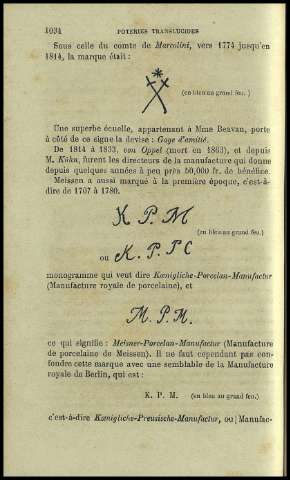 1034 POTERIES TRANSLUCIDES
Sous celle du comte de Marcolini, vers 1774 jusqu'en
1814, la marque était :
(en bleu au grand feu.)
Une superbe écuelle, appartenant à Mme Beavan, porte
à côté de ce signe la devise : Gage d'amitié.
De 1814 à 1833, von Oppel (mort en 1863), et depuis
M. Kühn, furent les directeurs de la manufacture qui donne
depuis quelques années à peu près 50,000 fr. de bénéfice.
Meissen a aussi marqué à la première époque, c'est-à-
dire de 1707 à 1780.
K P. M
(en bleu au grand feu.)
ou K. P. P C
monogramme qui veut dire Kœnigliche-Porcelan-Manufactur
(Manufacture royale de porcelaine), et
M. P. M.
ce qui signifie : Meisner-Porcelan-Manufactur (Manufacture
de porcelaine de Meissen). Il ne faut cependant pas con-
fondre cette marque avec une semblable de la Manufacture
royale de Berlin, qui est :
K. P. M. (en bleu au grand feu.)
c'est-à-dire Kœnigliche-Preusische-Manufactur, ou Manufac-